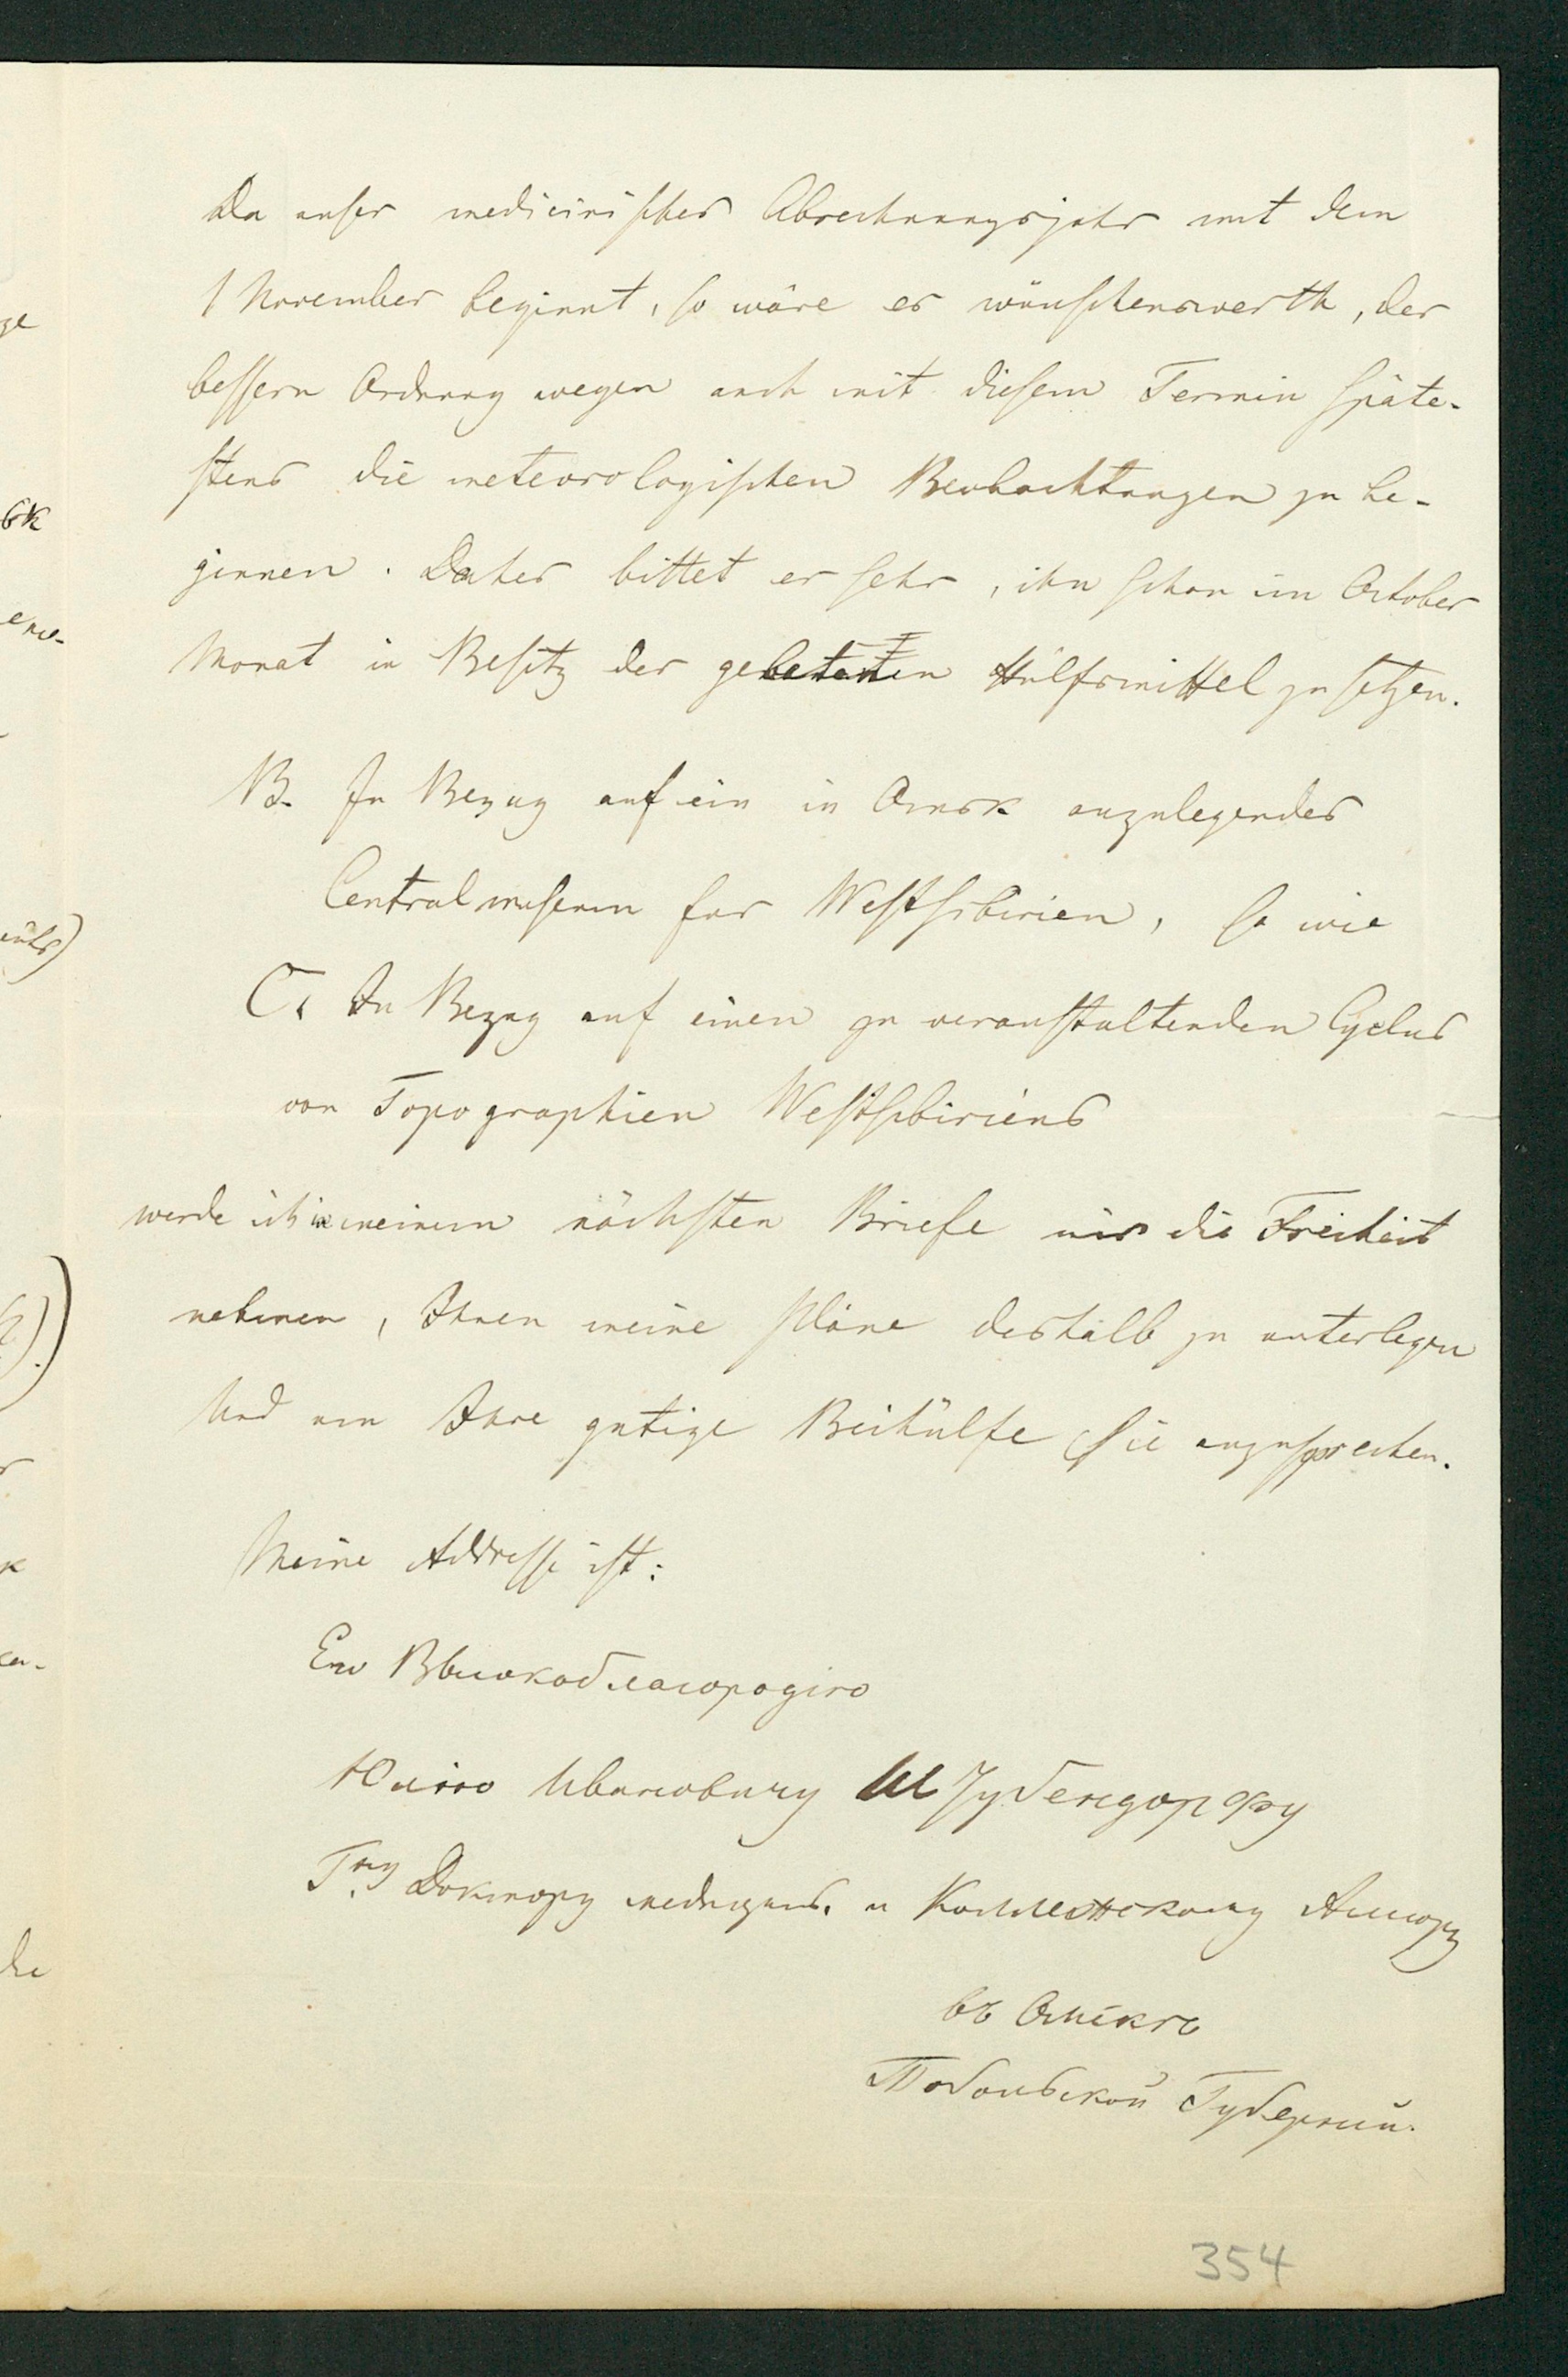 Da unser medicinisches Abrechnungsjahr mit dem
1 November beginnt, so wäre es wünschenswerth, der
bessern Ordnung wegen auch mit diesem Termin späte-
stens die meteorologischen Beobachtungen zu be-
ginnen. Daher bittet er sehr, ihn schon im October
Monat in Besitz der gebetenen Hülfsmittel zu setzen.
B. In Bezug auf ein in Omsk anzulegendes
Centralmuseum für Westsibirien, so wie
C. In Bezug auf einen zu veranstaltenden Cyclus
von Topographien Westsibiriens
werde ich in meinem nächsten Briefe mir die Freiheit
nehmen, Ihnen meine Pläne deshalb zu unterlegen
und um Ihre gütige Beihülfe Sie anzusprechen.
Meine Addresse ist:
Его Высокоблагородію
Юлію Ивановичу Штубендорфу
Гну Доктору медицины и Коллежскому Ассесору
въ Омскѣ
Тобольской Губерніи.
354